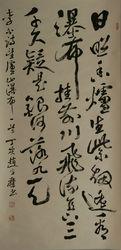 日照香爐生紫烟遥看
瀑布挂前川飛流直下三
千尺疑是銀河落九天
廬山瀑布一首